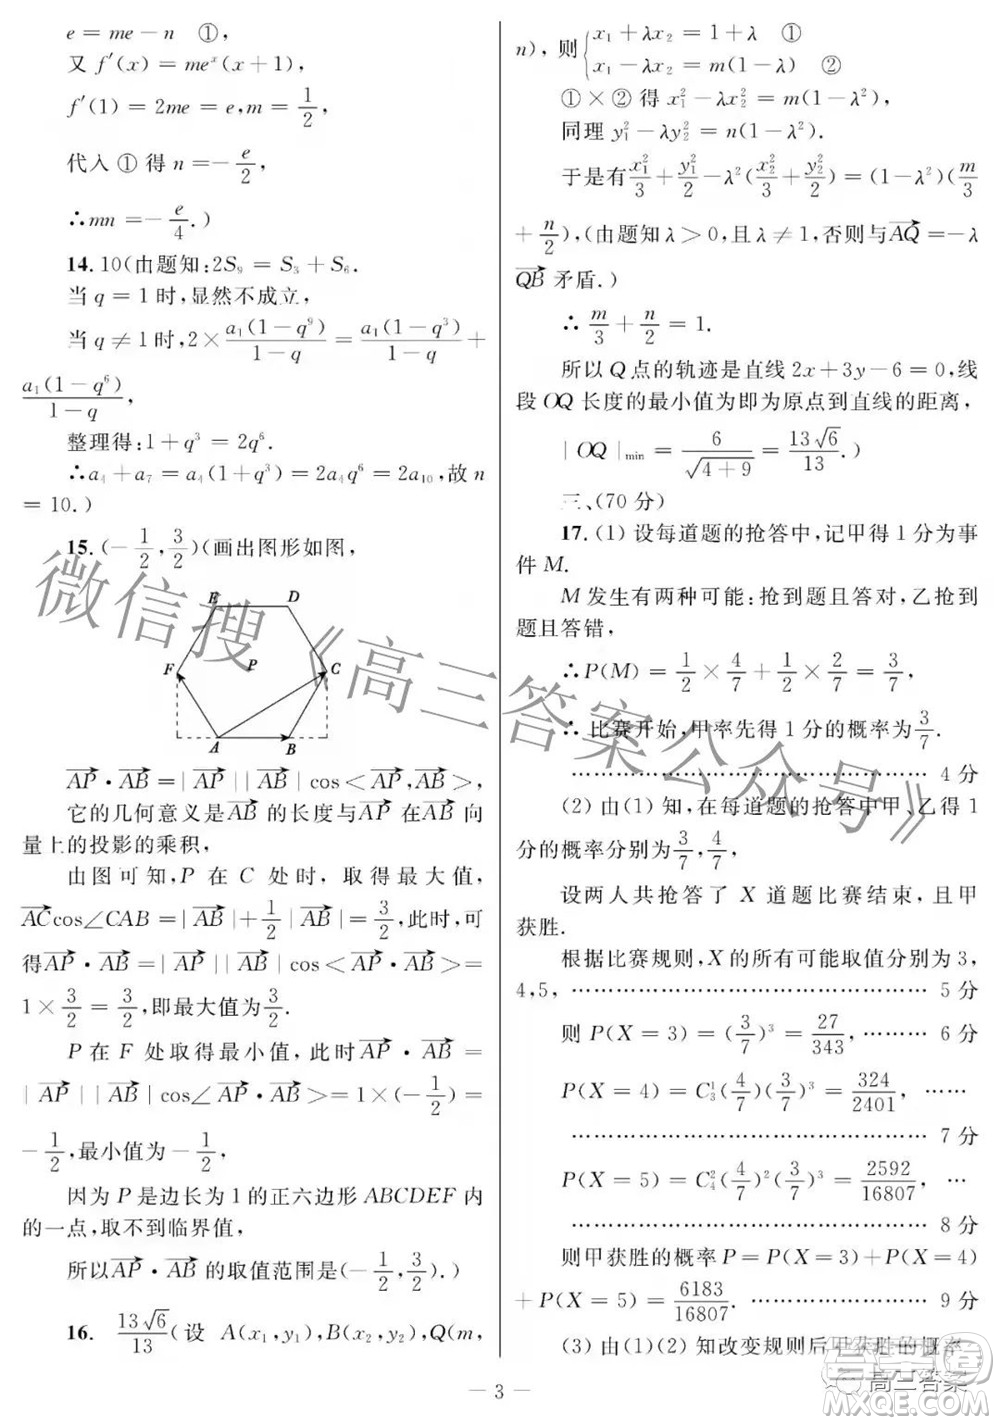 e = me − n ①,
又 f′(x) = meˣ(x+1),
f′(1) = 2me = e, m = 1/2,
代入 ① 得 n = −e/2,
∴mn = −e/4.)
14. 10(由题知:2S₉ = S₃ + S₆.
当 q = 1 时,显然不成立,
当 q ≠ 1 时, 2 × a₁(1−q⁹)/(1−q) = a₁(1−q³)/(1−q) +
a₁(1−q⁶)/(1−q),
整理得:1 + q³ = 2q⁶.
∴a₄ + a₇ = a₄(1+q³) = 2a₄q⁶ = 2a₁₀,故 n
= 10.)
15. (−1/2, 3/2)(画出图形如图,
E D
F P C
A B
AP · AB = | AP | | AB | cos < AP, AB >,
它的几何意义是 AB 的长度与 AP 在 AB 向
量上的投影的乘积,
由图可知, P 在 C 处时, 取得最大值,
AC cos∠CAB = | AB | + 1/2 | AB | = 3/2,此时,可
得 AP · AB = | AP | | AB | cos < AP · AB > =
1 × 3/2 = 3/2,即最大值为 3/2.
P 在 F 处取得最小值, 此时 AP · AB =
| AP | | AB | cos∠ AP · AB > = 1 × (−1/2) =
−1/2,最小值为 −1/2,
因为 P 是边长为 1 的正六边形 ABCDEF 内
的一点,取不到临界值,
所以 AP · AB 的取值范围是(−1/2, 3/2).)
16. 13√6/13 (设 A(x₁,y₁), B(x₂,y₂), Q(m,
n), 则 { x₁ + λx₂ = 1 + λ ①
x₁ − λx₂ = m(1−λ) ②
① × ② 得 x₁² − λx₂² = m(1−λ²),
同理 y₁² − λy₂² = n(1−λ²).
于是有 x₁²/3 + y₁²/2 − λ²(x₂²/3 + y₂²/2) = (1−λ²)(m/3
+ n/2),(由题知 λ > 0,且 λ ≠ 1,否则与 AQ = −λ
QB 矛盾.)
∴ m/3 + n/2 = 1.
所以 Q 点的轨迹是直线 2x + 3y − 6 = 0,线
段 OQ 长度的最小值为即为原点到直线的距离,
| OQ |min = 6/√(4+9) = 13√6/13.)
三、(70 分)
17. (1) 设每道题的抢答中,记甲得 1 分为事
件 M.
M 发生有两种可能:抢到题且答对,乙抢到
题且答错,
∴P(M) = 1/2 × 4/7 + 1/2 × 2/7 = 3/7,
∴ 比赛开始,甲率先得 1 分的概率为 3/7.
………………………………………… 4 分
(2) 由(1) 知,在每道题的抢答中甲、乙得 1
分的概率分别为 3/7, 4/7,
设两人共抢答了 X 道题比赛结束,且甲
获胜.
根据比赛规则,X 的所有可能取值分别为 3,
4,5, ………………………………………… 5 分
则 P(X = 3) = (3/7)³ = 27/343, ……… 6 分
P(X = 4) = C₃¹(4/7)(3/7)³ = 324/2401, ……
………………………………………… 7 分
P(X = 5) = C₄²(4/7)²(3/7)³ = 2592/16807, …
………………………………………… 8 分
则甲获胜的概率 P = P(X = 3) + P(X = 4)
+ P(X = 5) = 6183/16807. ……………… 9 分
(3) 由(1)(2) 知改变规则后甲获胜的概率
— 3 —
微信搜《高三答案公众号》
高三答案